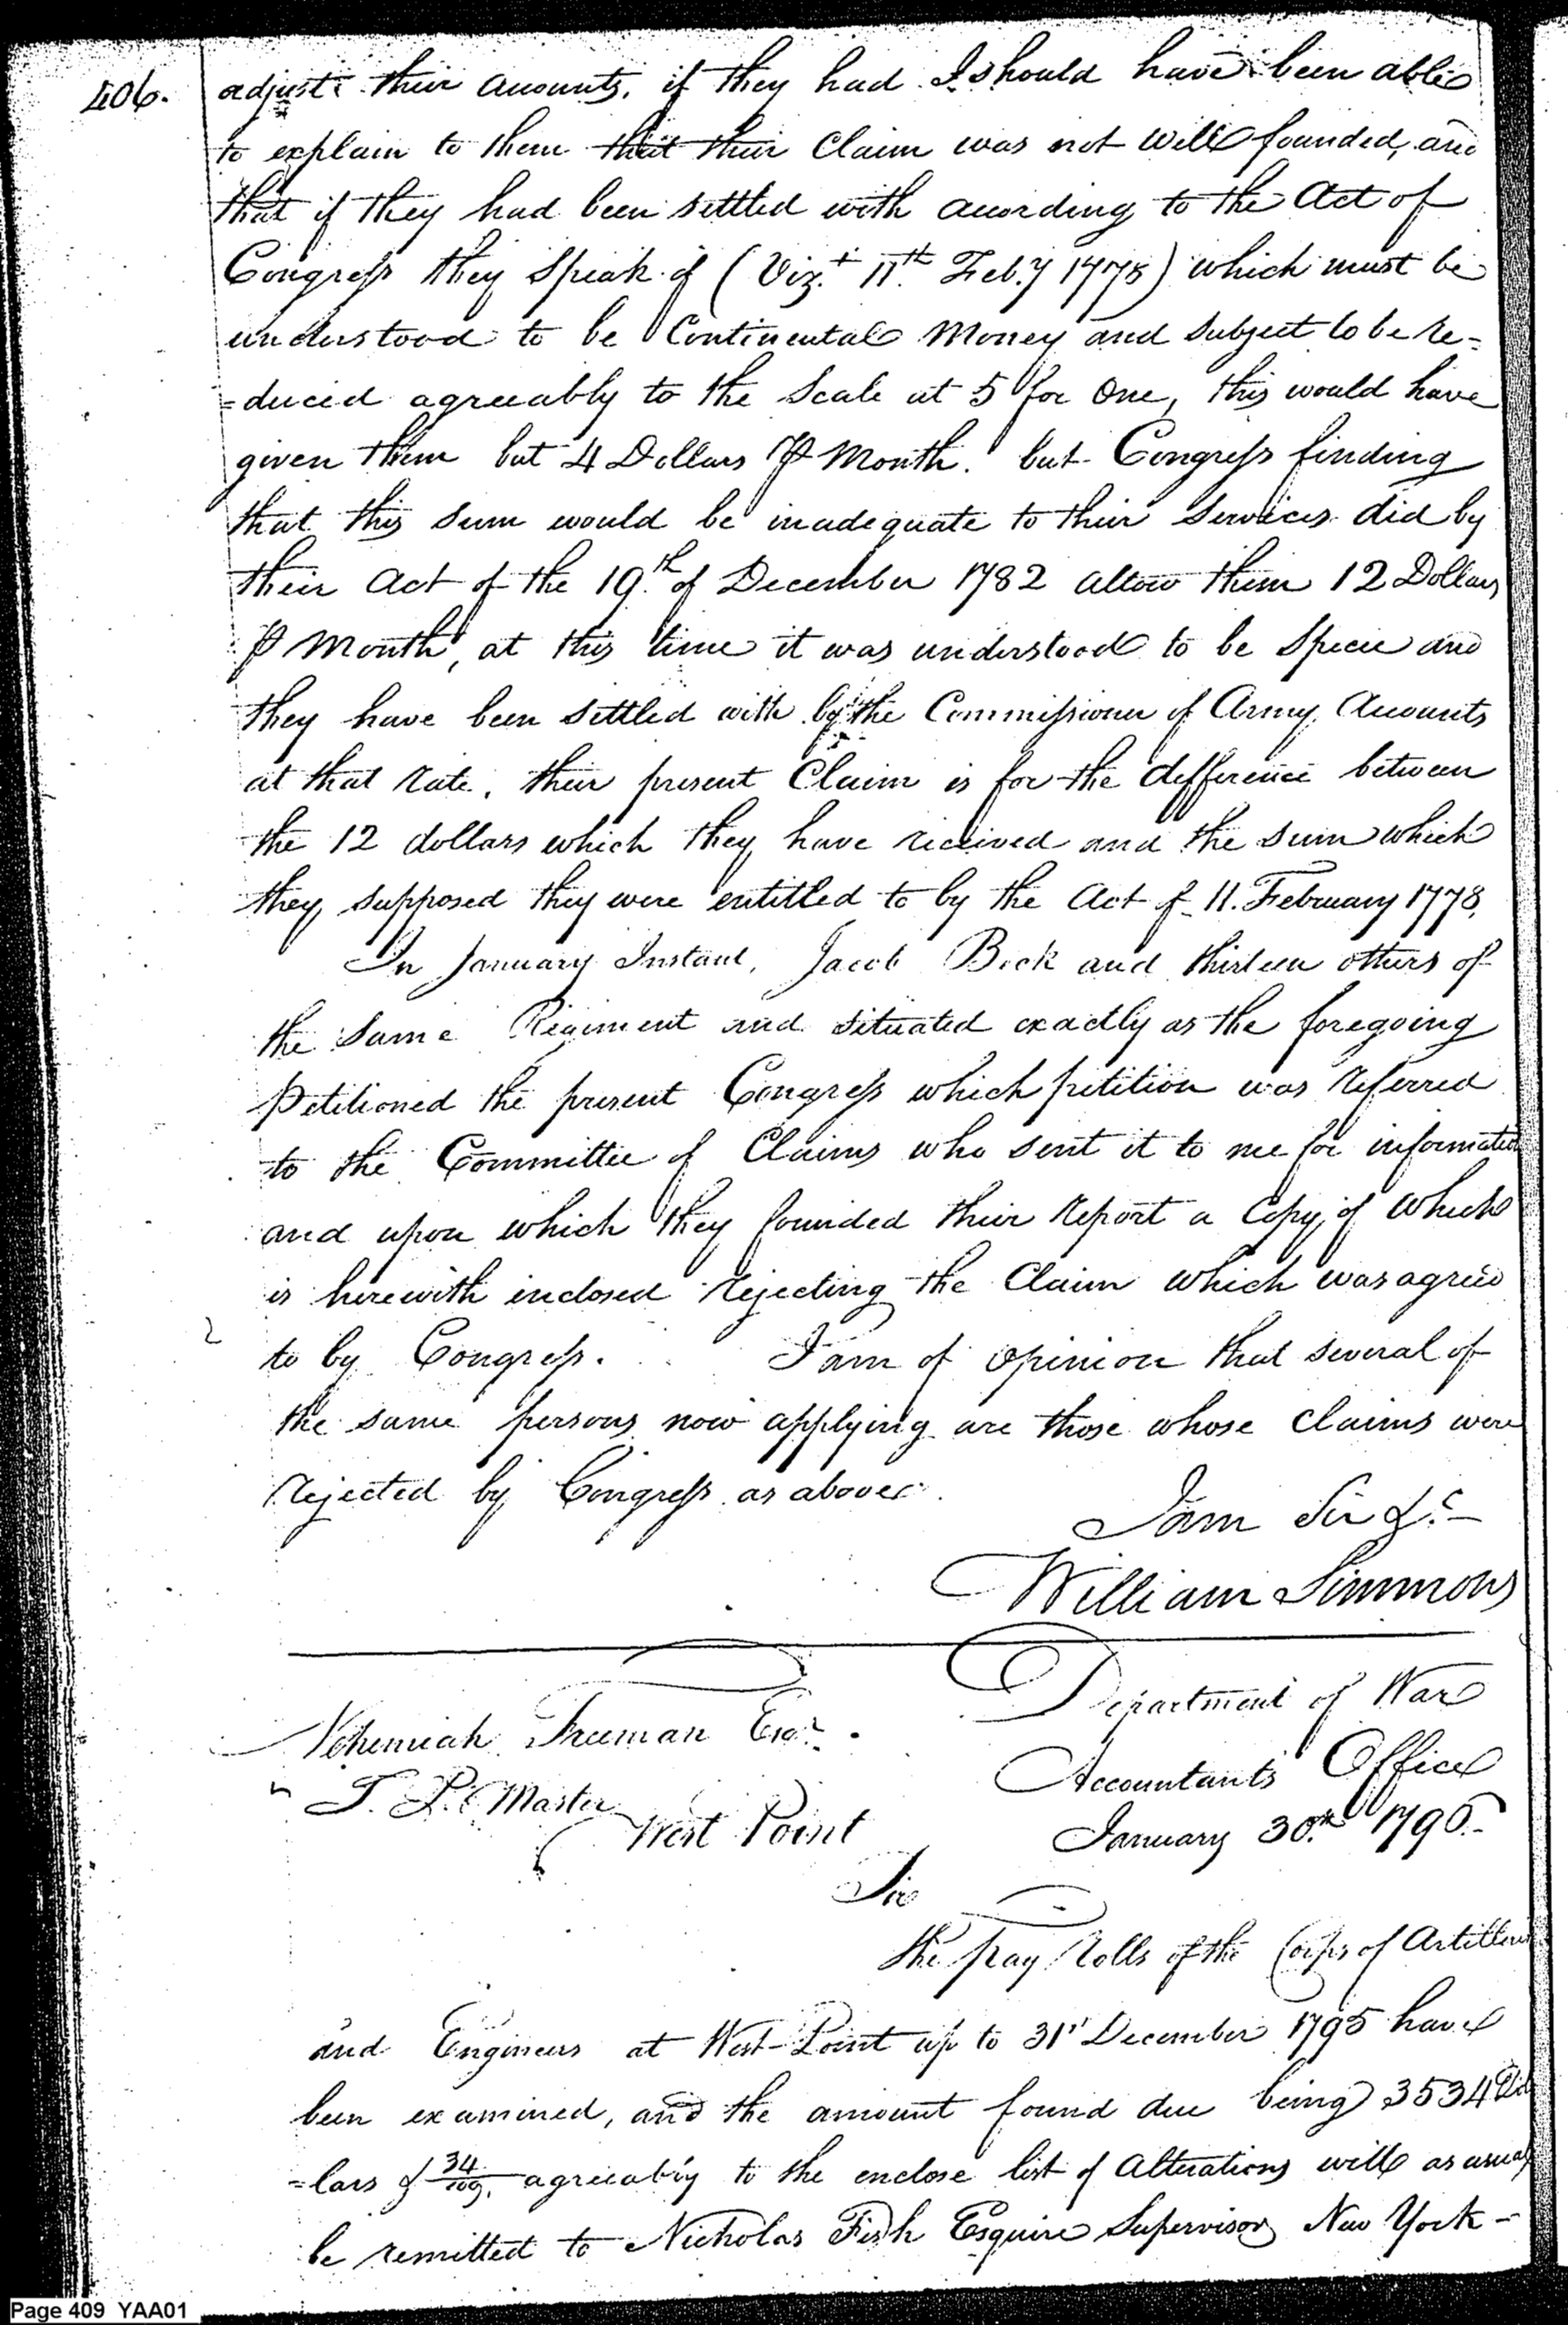 406.
adjust their accounts, if they had I should have been able
to explain to them that their Claim was not well founded, and
that if they had been settled with according to the Act of
Congress they speak of (Vizt. 11th. Feb.y 1778) which must be
understood to be Continental Money and subject to be re-
=duced agreeably to the Scale at 5 for One, this would have
given them but 4 Dollars ⅌ Month. but Congress finding
that this sum would be inadequate to their services did by
their Act of the 19th. of December 1782 allow them 12 Dollars
⅌ Month, at this time it was understood to be Specie and
they have been settled with by the Commissioner of Army Accounts
at that rate, their present Claim is for the difference between
the 12 dollars which they have received and the sum which
they supposed they were entitled to by the Act of 11. February 1778.
In January Instant, Jacob Beck and thirteen others of
the same Regiment and situated exactly as the foregoing
petitioned the present Congress which petition was referred
to the Committee of Claims who sent it to me for information
and upon which they founded their report a Copy of which
is herewith inclosed rejecting the Claim which was agreed
to by Congress. I am of opinion that several of
the same persons now applying are those whose claims were
rejected by Congress as above.
I am Sir &c.
William Simmons
Department of War
Nehemiah Freeman Esqr.
Accountants Office
" T. P. Master
West Point
January 30.th 1796.
Sir
the pay Rolls of the Corps of Artillery
and Engineers at West-Point up to 31st December 1795 have
been examined, and the amount found due being 3534 Dol
=lars & 34/100. agreeably to the enclose list of Alterations will as usual
be remitted to Nicholas Fish Esquire Supervisor New York -
Page 409 YAA01